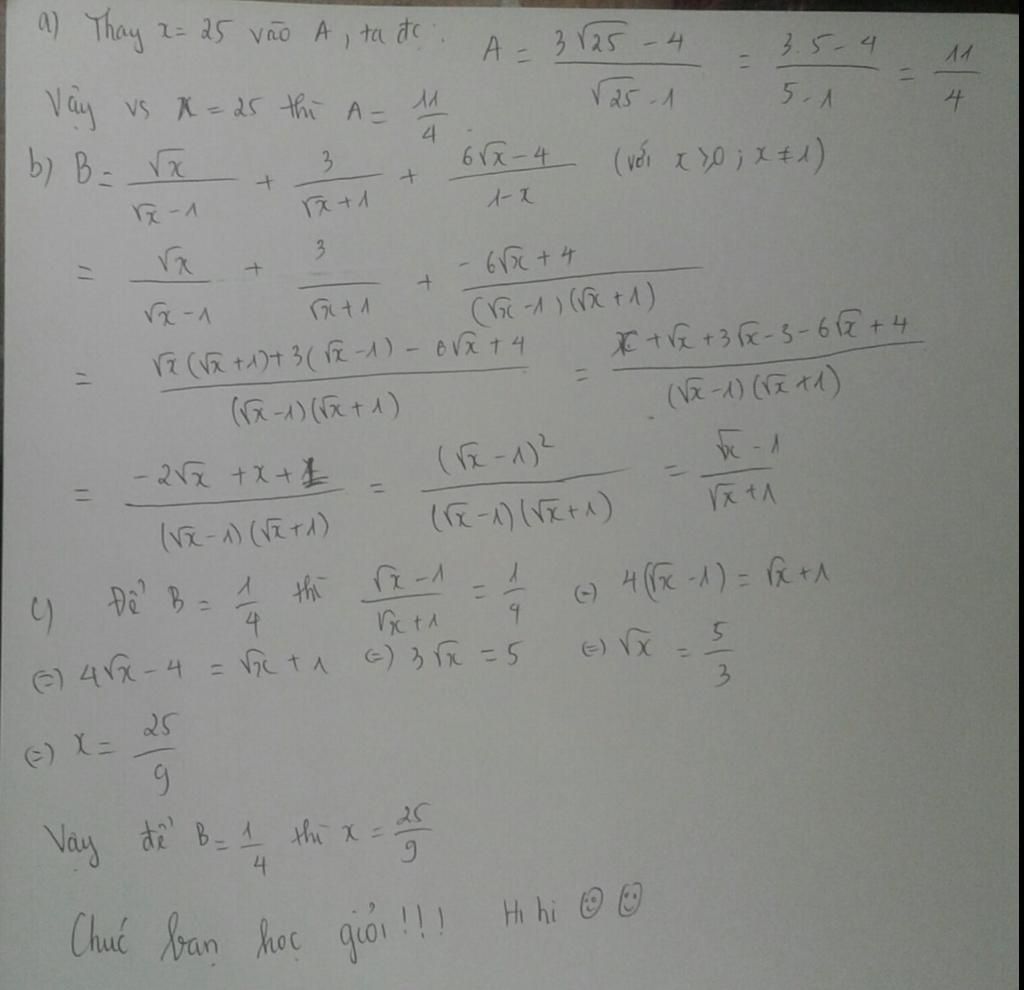 a) Thay x = 25 vào A, ta đc: A = (3√25 - 4)/(√25 - 1) = (3.5 - 4)/(5 - 1) = 11/4
Vậy vs x = 25 thì A = 11/4.
b) B = √x/(√x - 1) + 3/(√x + 1) + (6√x - 4)/(1 - x) (với x ≥ 0; x ≠ 1)
= √x/(√x - 1) + 3/(√x + 1) + (-6√x + 4)/((√x - 1)(√x + 1))
= (√x(√x + 1) + 3(√x - 1) - 6√x + 4)/((√x - 1)(√x + 1)) = (x + √x + 3√x - 3 - 6√x + 4)/((√x - 1)(√x + 1))
= (-2√x + x + 1)/((√x - 1)(√x + 1)) = (√x - 1)²/((√x - 1)(√x + 1)) = (√x - 1)/(√x + 1)
c) Để B = 1/4 thì (√x - 1)/(√x + 1) = 1/4 (=) 4(√x - 1) = √x + 1
(=) 4√x - 4 = √x + 1 (=) 3√x = 5 (=) √x = 5/3
(=) x = 25/9
Vậy để B = 1/4 thì x = 25/9
Chúc bạn học giỏi!!! Hi hi ☺ ☺